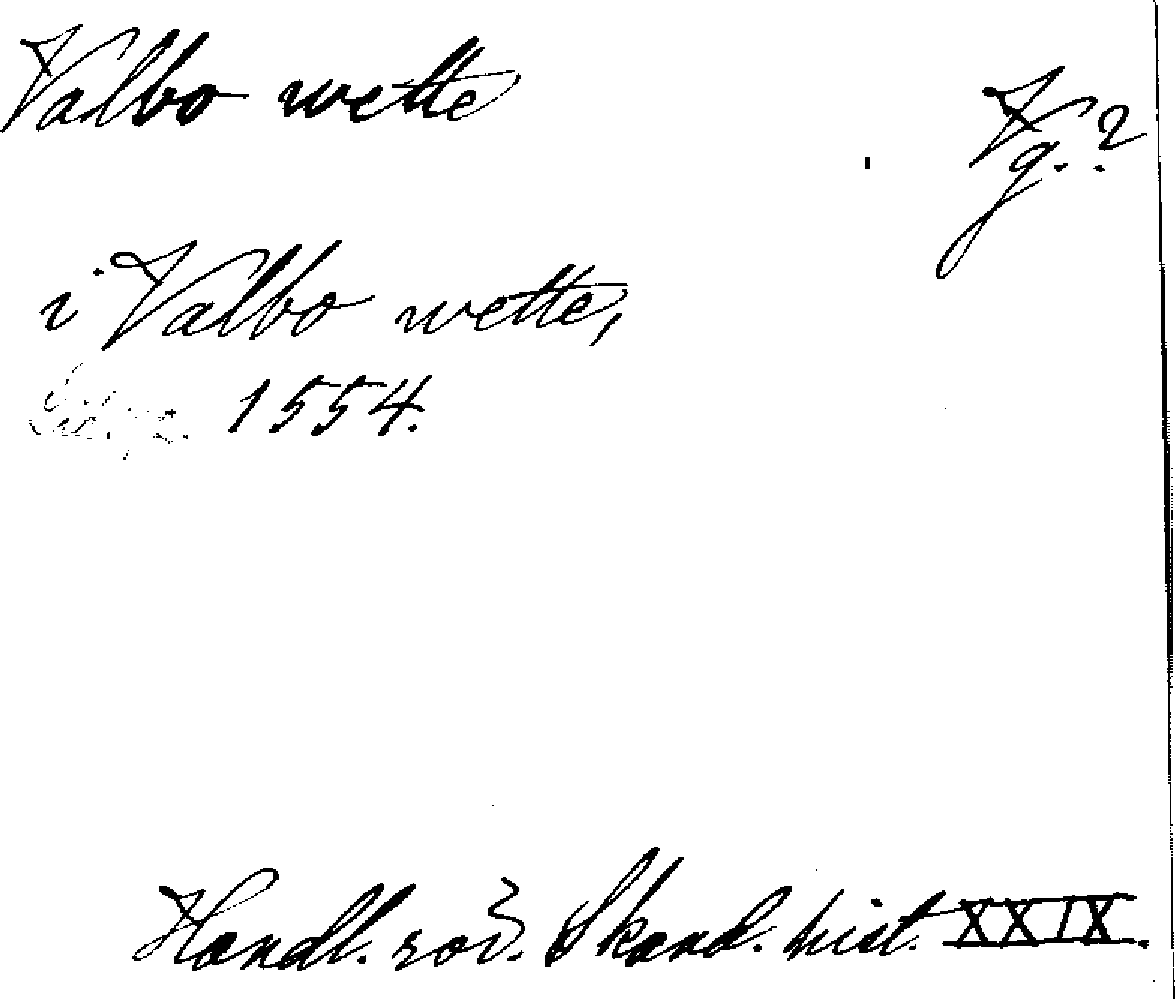 Valbo wette
Vg.?
i Valbo wette,
1554.
Handl. rör. Skand. hist. XXIX.